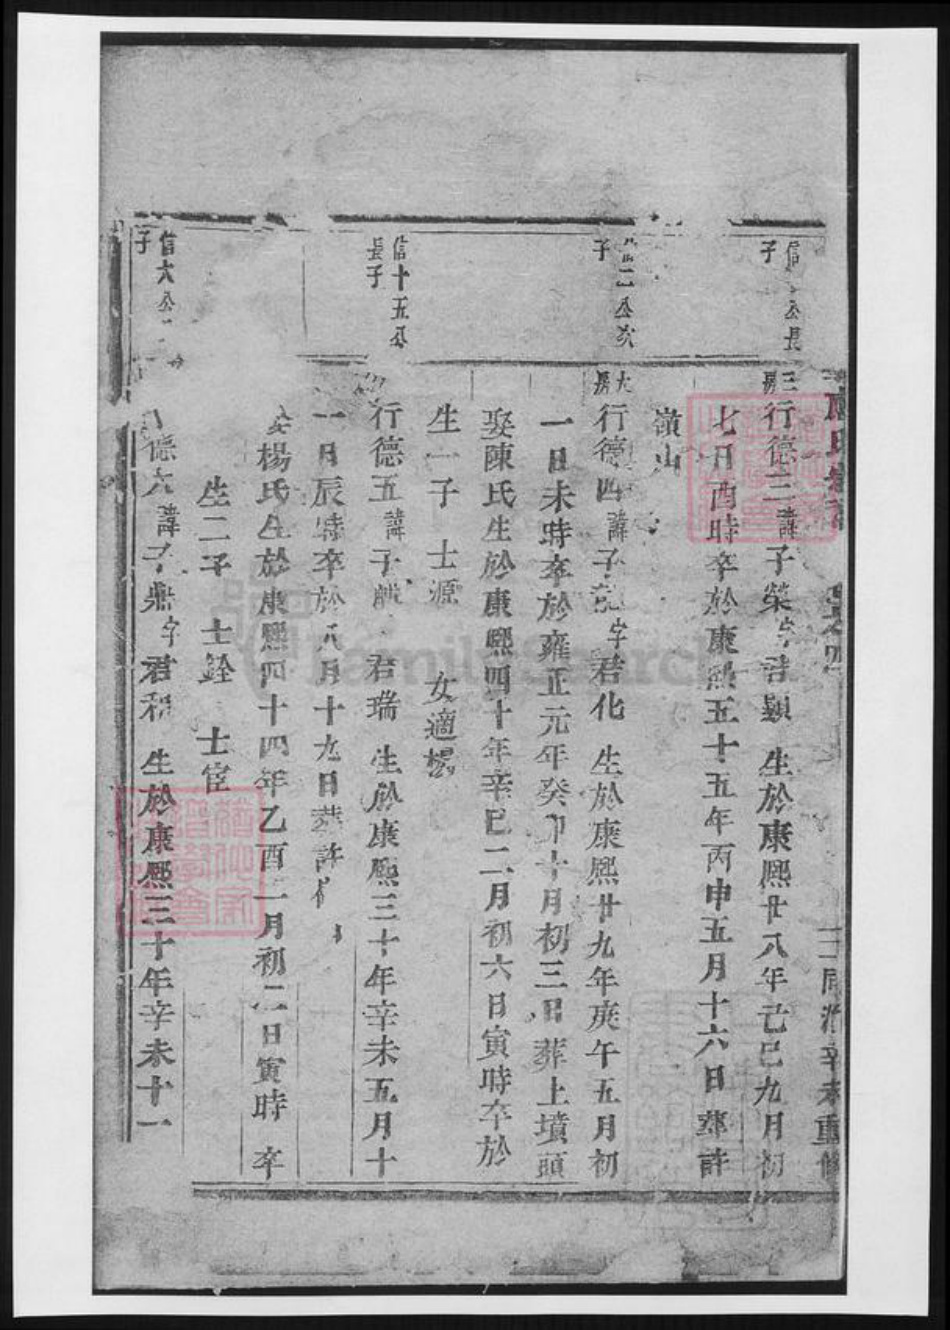 同治辛未重修
信 公長
子
三房
行德三諱子榮字君顯 生於康熙廿八年己巳九月初
七日酉時卒於康熙五十五年丙申五月十六日葬許
嶺山
信二公次
子
大房
行德四諱子 字君化 生於康熙廿九年庚午五月初
一日未時卒於雍正元年癸卯十月初三日葬上墳頭
娶陳氏生於康熙四十年辛巳二月初六日寅時卒於
生一子 士源 女適楊
信十五公
長子
行德五諱子 君瑞 生於康熙三十年辛未五月十
一日辰時卒於八月十九日葬許
娶楊氏生於康熙四十四年乙酉二月初二日寅時 卒
生二子 士銓 士宦
信六公
子
德六諱子鼎字君和 生於康熙三十年辛未十一
FamilySearch